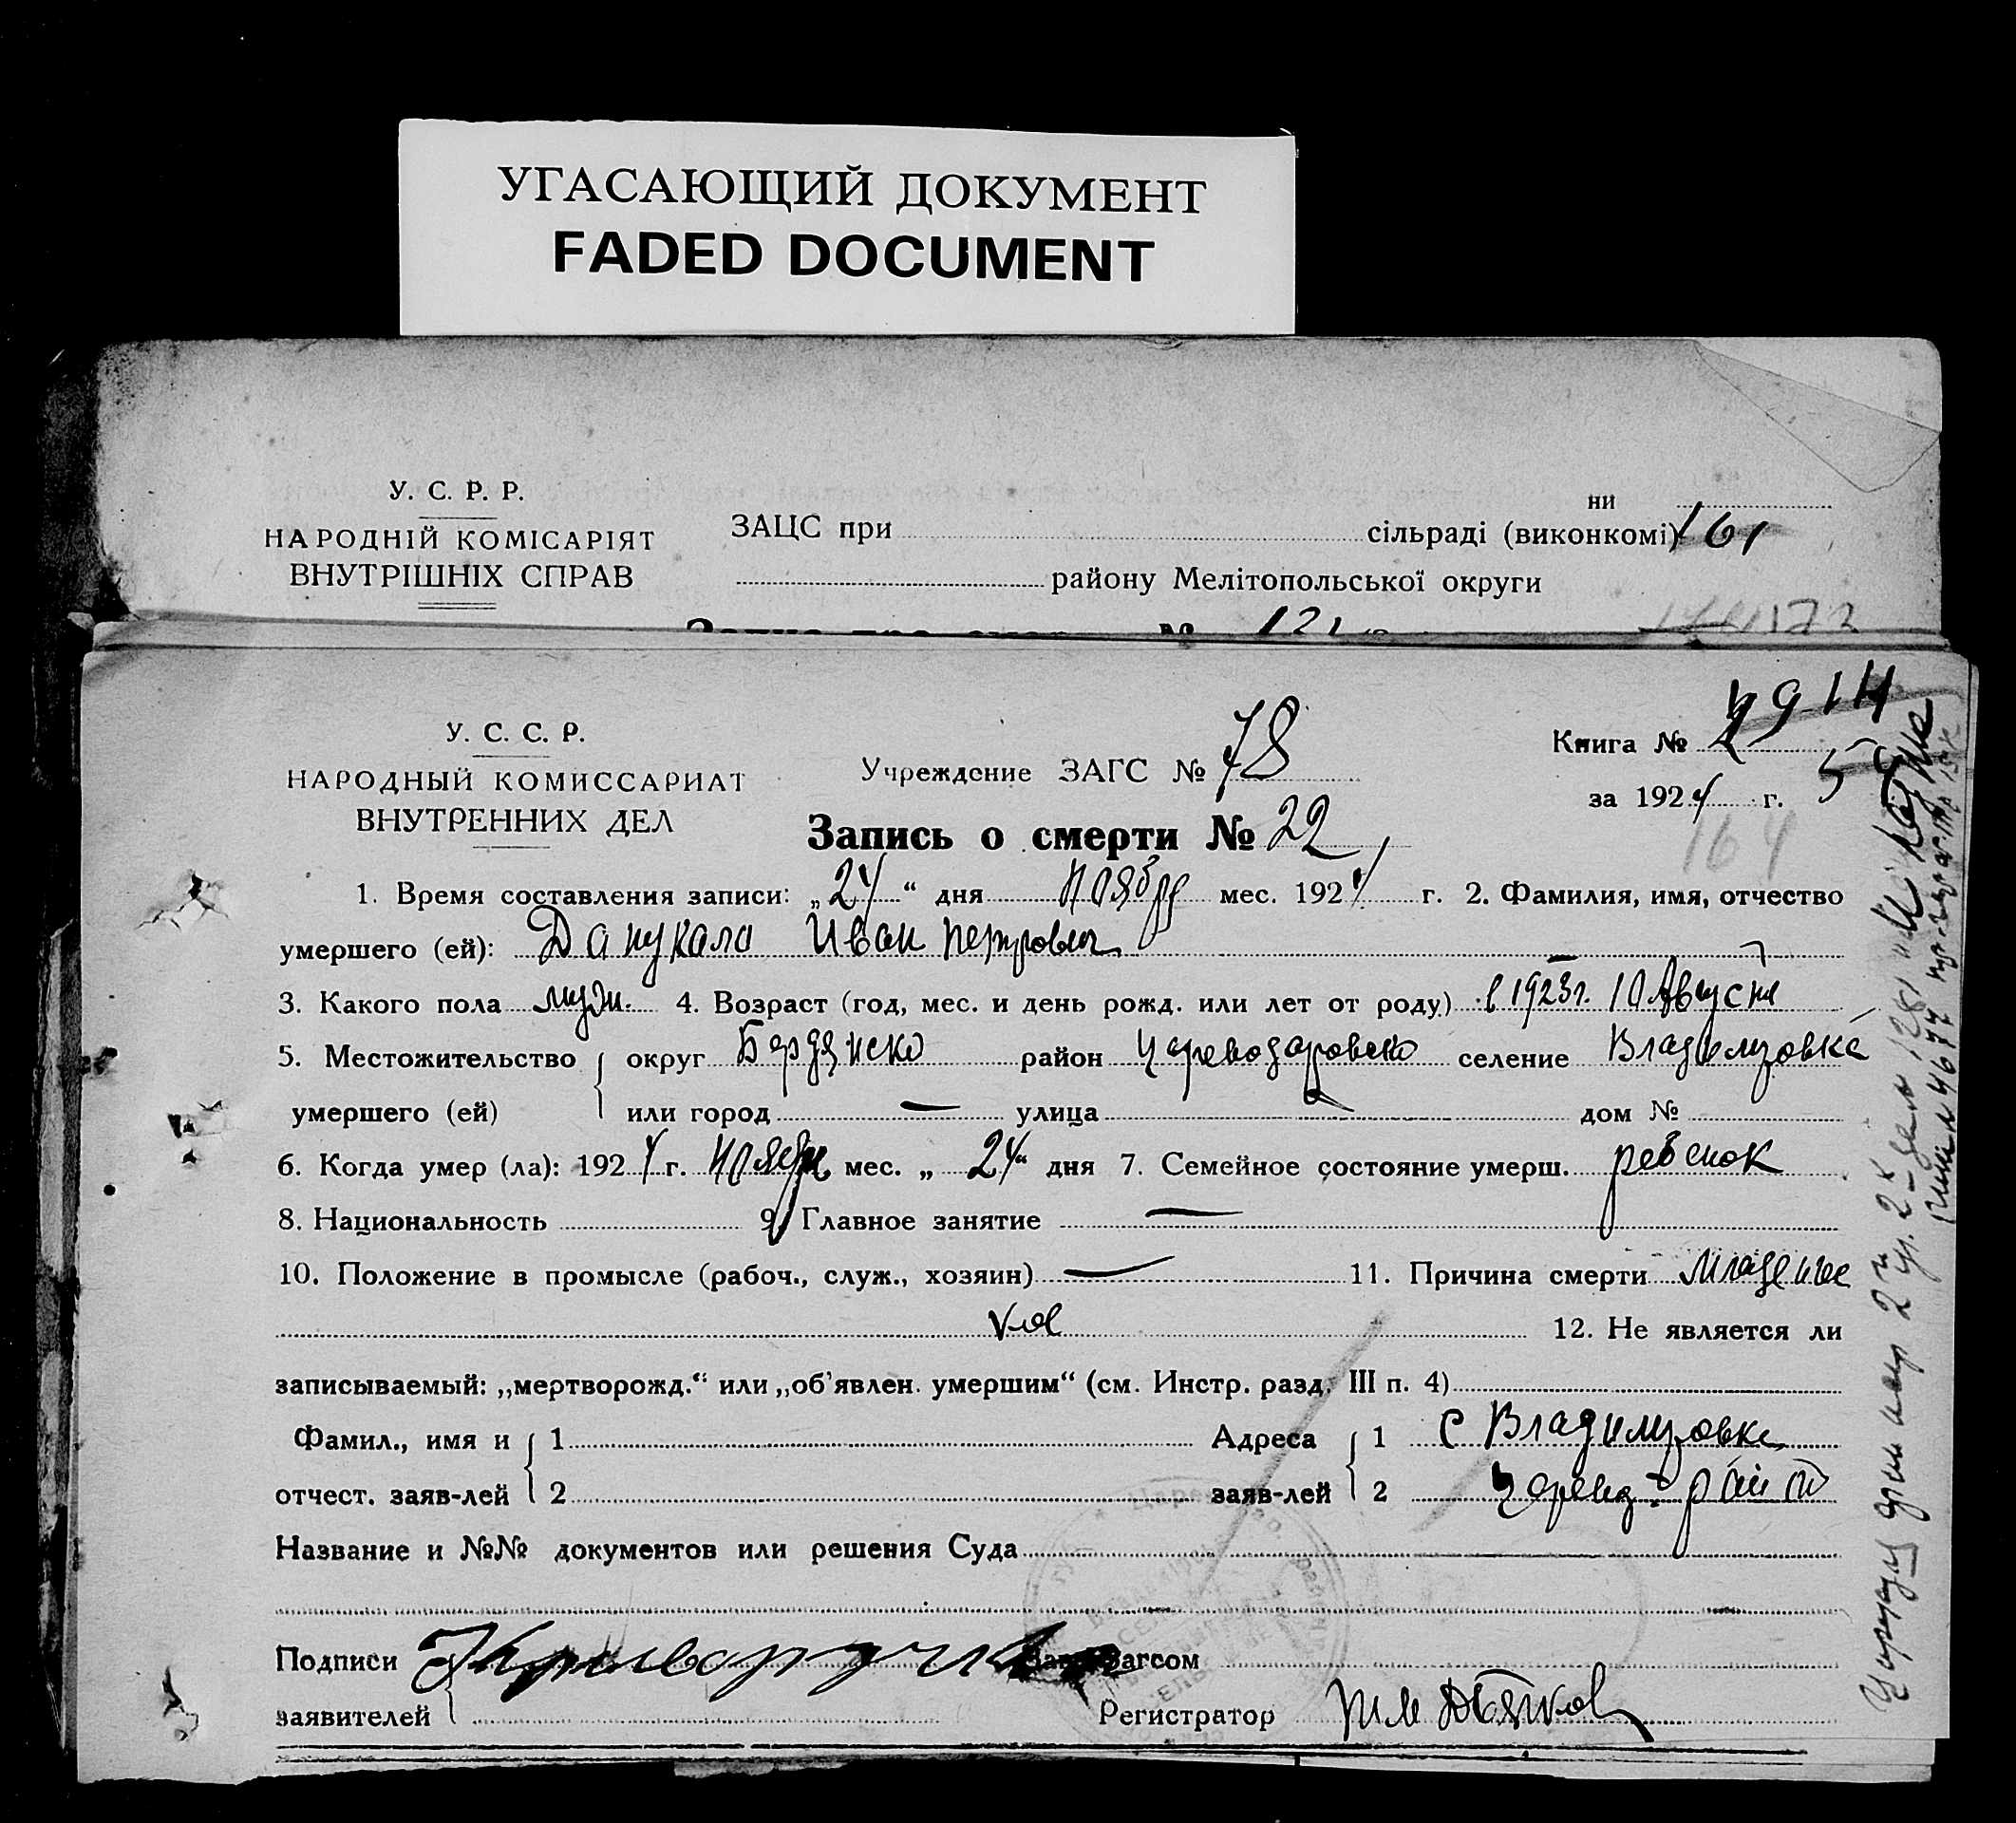 УГАСАЮЩИЙ ДОКУМЕНТ
FADED DOCUMENT
У. С. Р. Р.
НАРОДНІЙ КОМІСАРІЯТ
ВНУТРІШНІХ СПРАВ
ни
ЗАЦС при сільраді (виконкомі) 161
району Мелітопольської округи
№ 121
У. С. С. Р.
НАРОДНЫЙ КОМИССАРИАТ
ВНУТРЕННИХ ДЕЛ
Учреждение ЗАГС № 78
Книга №
за 1924 г.
164
Запись о смерти № 22
1. Время составления записи: „24“ дня ноября мес. 1924 г. 2. Фамилия, имя, отчество
умершего (ей): Данукало Иван Петрович
3. Какого пола муж. 4. Возраст (год, мес. и день рожд. или лет от роду) в 1923 г. 10 Августа
5. Местожительство округ Бердянско район Цареводаровско селение Владимировка
умершего (ей) или город — улица — дом №
6. Когда умер (ла): 1924 г. ноября мес. „24“ дня 7. Семейное состояние умерш. ребенок
8. Национальность 9. Главное занятие —
10. Положение в промысле (рабоч., служ., хозяин) — 11. Причина смерти младенче
12. Не является ли
записываемый: „мертворожд.“ или „об'явлен. умершим“ (см. Инстр. разд. III п. 4)
Фамил., имя и 1 Адреса 1 с Владимировка
отчест. заяв-лей 2 заяв-лей 2
Название и №№ документов или решения Суда
Подписи Загсом
заявителей Регистратор